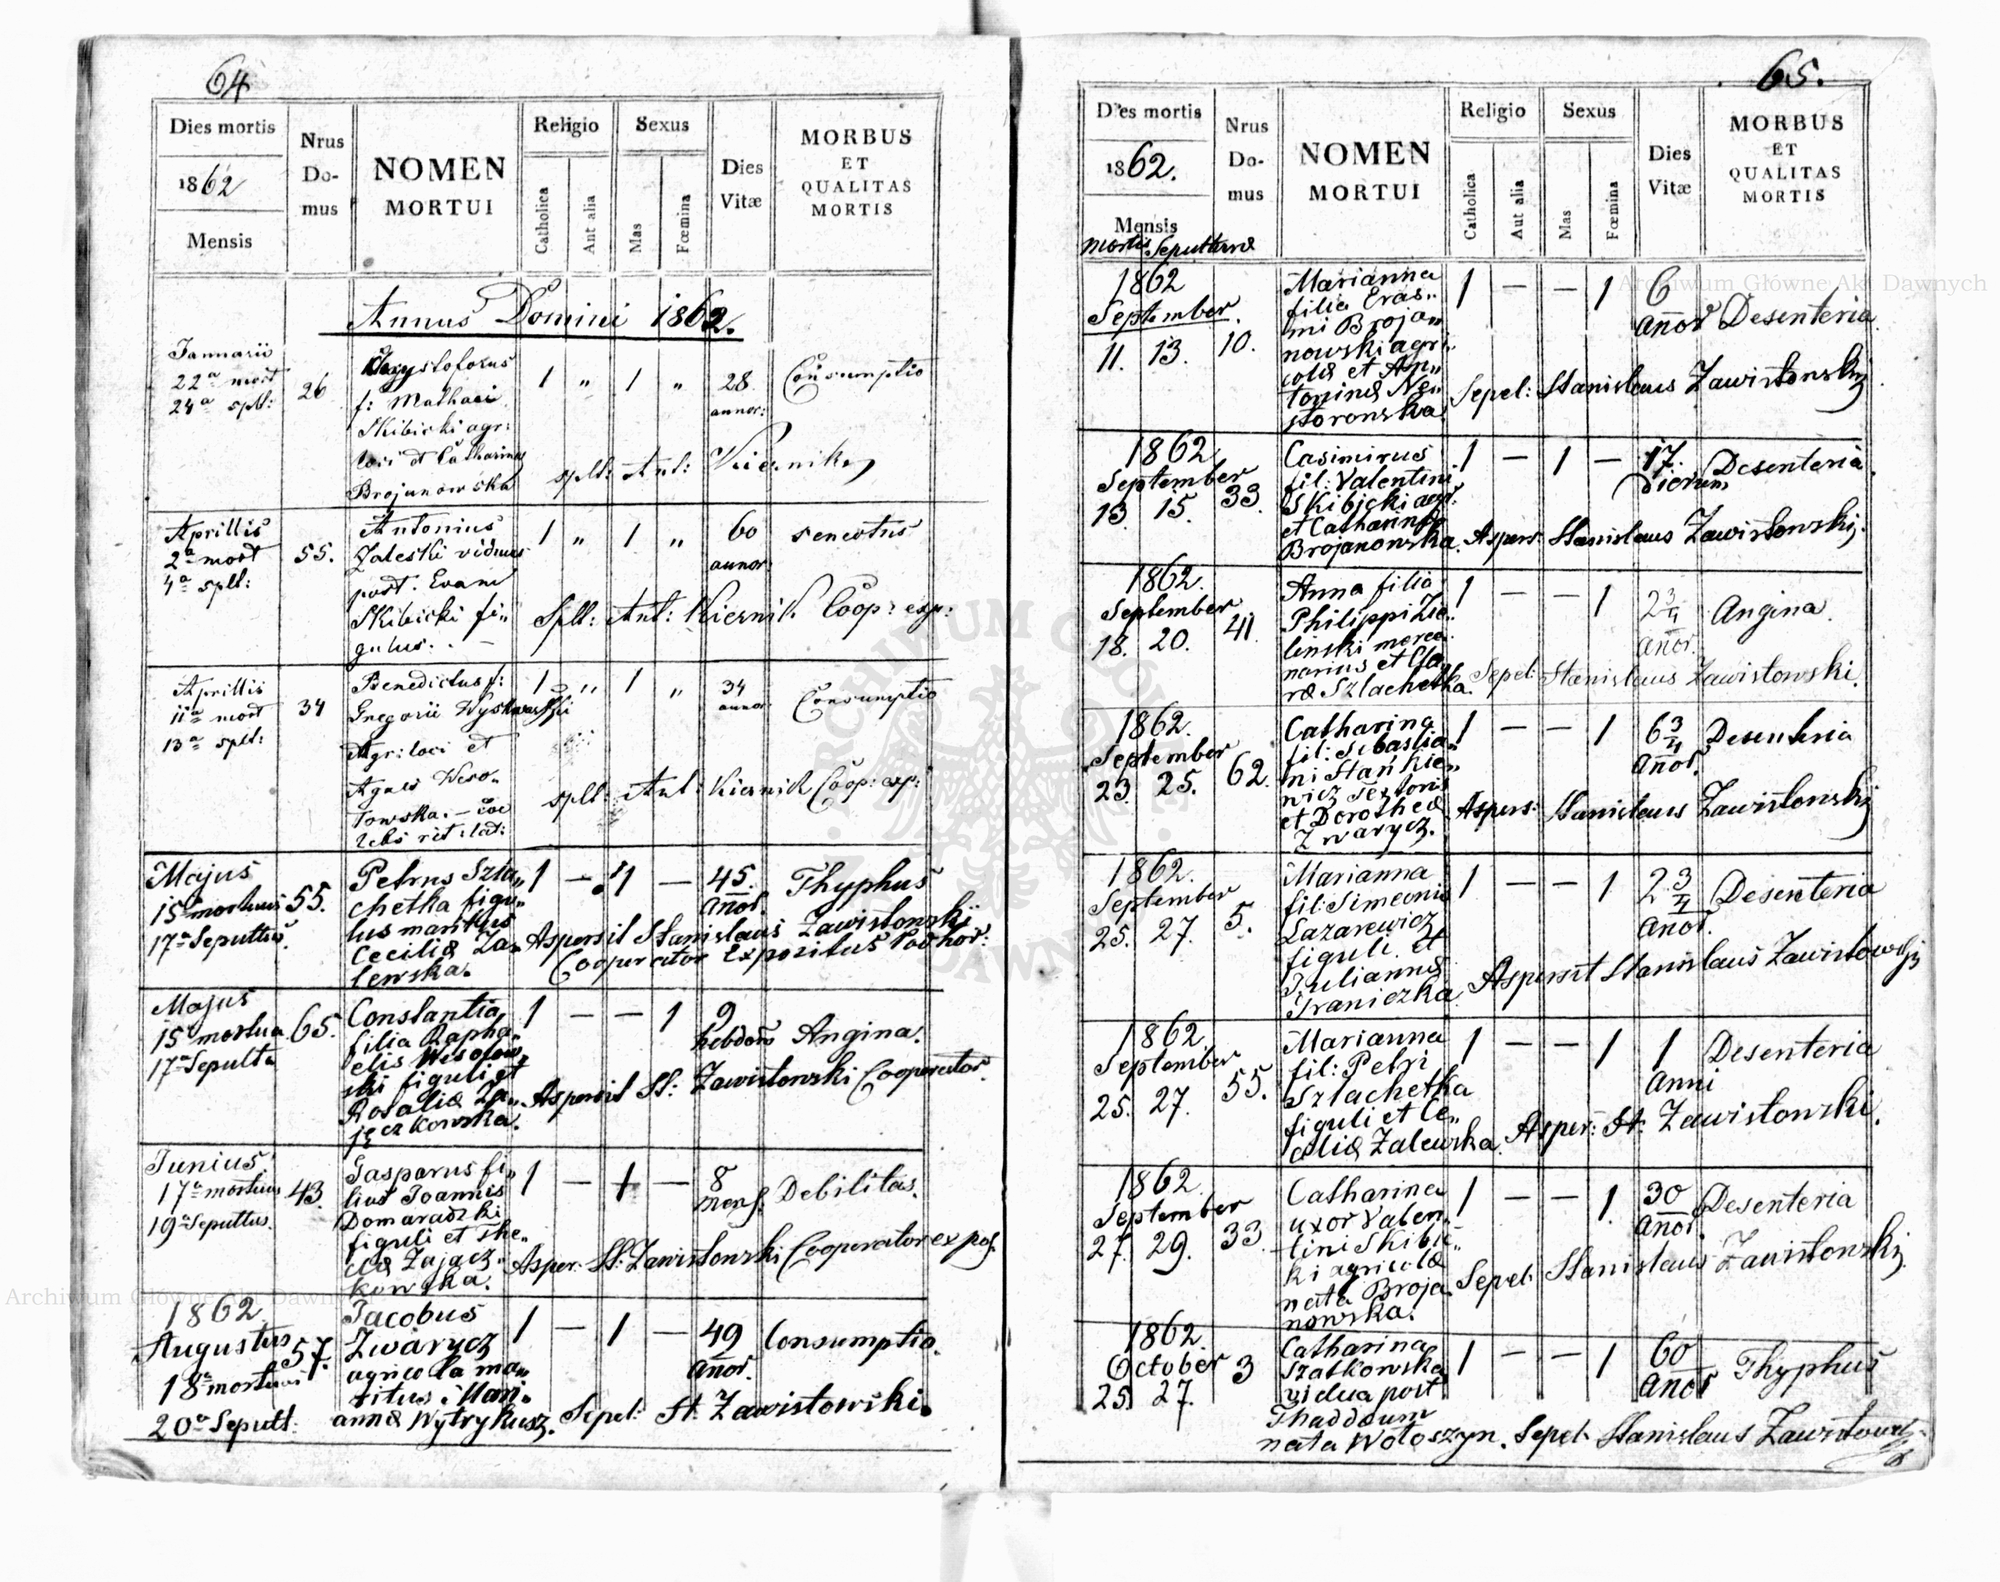 64
Dies mortis
1862
Mensis
Nrus
Do-
mus
NOMEN
MORTUI
Religio
Catholica
Aut alia
Sexus
Mas
Fœmina
Dies
Vitæ
MORBUS
ET
QUALITAS
MORTIS
Annus Domini 1862.
Januarii
22a mort
24a splt:
26
f: Mathaei
Skibicki agr:
et Catharinae
Brojanowska
1 " 1 "
28
annor:
Consumptio
splt: Ant: Kiernik
Aprillis
2a mort
4a splt:
55.
Antonius
Zaleski viduus
post. Evam
Skibicki fi„
gulus. . —
1 " 1 "
60
annor
senectus
Splt: Ant: Kiernik Coop: exp:
Aprillis
11a mort
13a splt:
34
Benedictus f:
Gregorii
Agr: loci et
Agnes Weso„
towska. —
1 " 1 "
34
annor
Consumptio
splt: Ant: Kiernik Coop: exp:
Majus
15a mortuus
17a Sepultus.
55.
Petrus Szla„
chetka figu„
lus maritus
Ceciliæ Za„
lewska.
1 — 1 —
45.
añor.
Thyphus
Aspersit Stanislaus Zawistowski
Cooperator Expositus
Majus
15a mortua
17a Sepulta
65.
Constantia
filia Rapha„
elis Wesołow„
ski figuli et
Rosaliæ Za„
jęczkowska.
1 — — 1
9
hebdom
Angina.
Aspersit St: Zawistowski Cooperator.
Junius
17a mortuus
19a Sepultus.
43.
Gasparus fi„
lius Joannis
Domaradzki
figuli et The„
clæ Zającz„
kowska.
1 — 1 —
8
mens:
Debilitas.
Asper: St: Zawistowski Cooperator expos.
1862
Augustus
18a mortuus
20a Sepult:
57.
Jacobus
Zwarycz
agricola ma„
ritus Mari„
annæ Wytrykusz.
1 — 1 —
49
añor.
Consumptio.
Sepel: St. Zawistowski.
65.
Dies mortis
1862.
Mensis
Mortis Sepulturæ
Nrus
Do-
mus
NOMEN
MORTUI
Religio
Catholica
Aut alia
Sexus
Mas
Fœmina
Dies
Vitæ
MORBUS
ET
QUALITAS
MORTIS
1862
September.
11. 13.
10.
Marianna
filia Eras„
mi Brojan„
nowski agri„
colæ et An„
toninæ Ne„
storowska
1 — — 1
6
añor
Desenteria
Sepel: Stanislaus Zawistowski
1862
September
13. 15.
33.
Casimirus
fil: Valentini
Skibicki agr:
et Catharinæ
Brojanowska.
1 — 1 —
17.
Dierum
Desenteria.
Aspers: Stanislaus Zawistowski.
1862.
September
18. 20.
41.
Anna filia
Philippi Zie„
linski merce„
narius et Cla„
ræ Szlachetka.
1 — — 1
2 3/4
añor.
Angina.
Sepel: Stanislaus Zawistowski.
1862.
September
23. 25.
62.
Catharina
fil: Sebastia„
ni Stankie„
wicz Textoris
et Dorotheæ
Zwarycz.
1 — — 1
6 3/4
añor.
Desenteria
Aspers: Stanislaus Zawistowski
1862.
September
25. 27.
5.
Marianna
fil: Simeonis
Lazarewicz
figuli et
Juliannæ
Iraniczka.
1 — — 1
2 3/4
añor.
Desenteria
Aspersit Stanislaus Zawistowski
1862.
September
25. 27.
55.
Marianna
fil: Petri
Szlachetka
figuli et Ce„
ciliæ Zalewska.
1 — — 1
1
Anni
Desenteria
Asper: St. Zawistowski.
1862
September
27. 29.
33.
Catharina
uxor Valen„
tini Skibic„
ki agricolæ
nata Broja„
nowska.
1 — — 1.
30
añor
Desenteria
Sepel: Stanislaus Zawistowski.
1862.
October
25. 27.
3
Catharina
Szatkowska
vidua post
Thaddeum
nata Wołoszyn.
1 — — 1
60
añor
Thyphus
Sepel: Stanislaus Zawistowski
Archiwum Główne Akt Dawnych
Archiwum Główne Akt Dawnych
ARCHIWUM GŁÓWNE AKT DAWNYCH